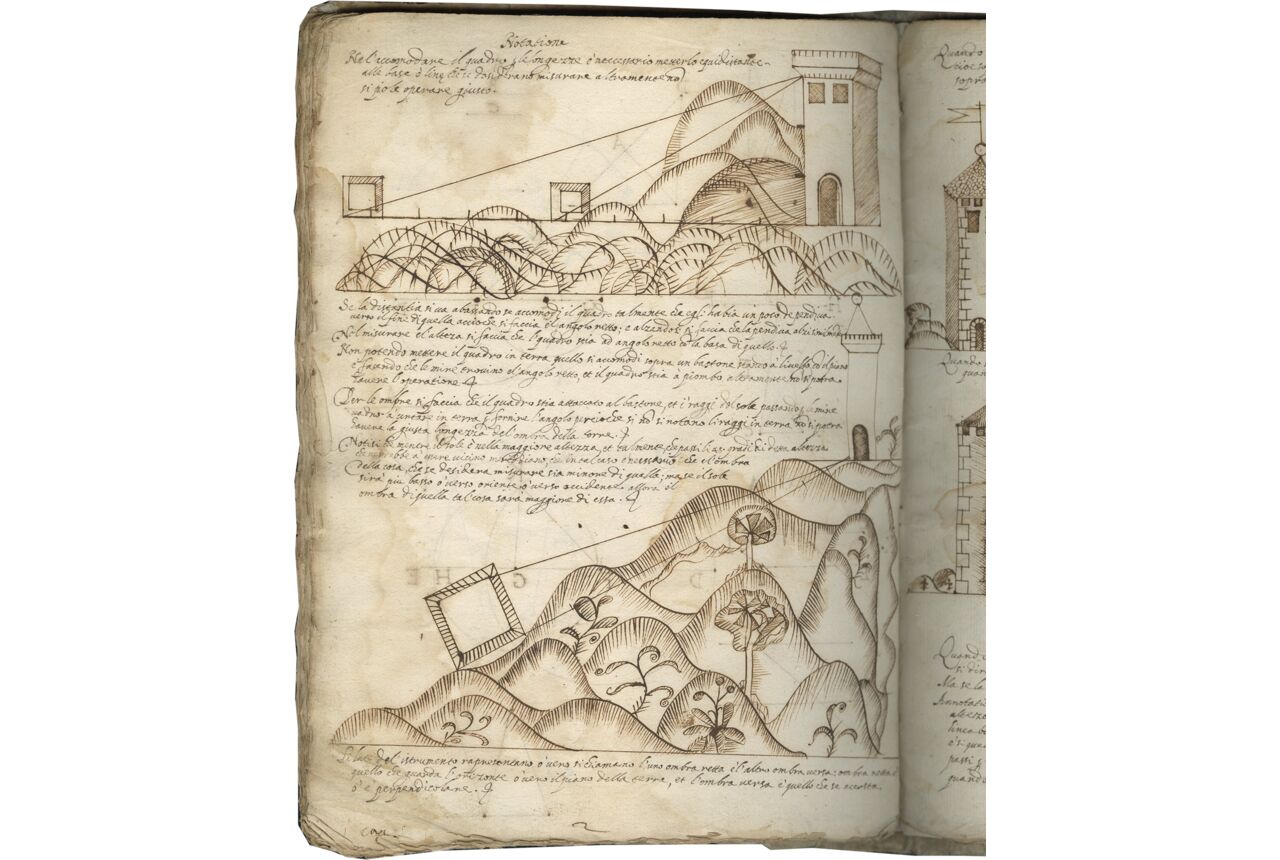 Notatione
Nel accomodare il quadro p le longezze è necessario meterlo equidistante
alle base ò linee che si desiderano misurare altramente nō
si pole operare giusto.
Se la distantia si va abassando se accomodi il quadro talmente che egli habia un poco de pendiva
verso il fine di quella acciochè si faccia el angolo retto; e alzandosi si faccia che la pendiva
Nel misurare el alteza si faccia che l'quadro stia ad angolo retto cō la basa di quello.
Non potendo mettere il quadro in terra quello si accomodi sopra un bastone à livello cō il piano
e facendo che le mire trovino el angolo retto, et il quadro stia à piombo altramente nō si potra
havere l'operatione.
Per le ombre si faccia che il quadro stia attaccato al bastone, et i raggi del sole passando p le mire
vadino à in terra p fornire l'angolo perciochè si nō si notano li raggi in terra nō si potra
havere la giusta longezza del'ombra della torre.
Notisi che mentre il sole è nella maggiore altezza, et talmente che passi li 45 gradi di detta altezza
vicino in tal caso è necessario che el ombra
della cosa che se desidera misurare sia minore di quella; ma se il sole
sira più basso ò verso oriente ò verso occidente allora el
ombra di quella tal cosa sara maggiore di essa.
E G H D
del istrumento rapresentano ò vero si chiamano l'uno ombra retta è l'altro ombra versa; ombra retta è
quello che guarda l'orizonte ò vero il piano della terra, et l'ombra versa è quello che se acosta
ò è perpendicolare.
2
Quando
cioe
sopra
Quando
quan
Quand
si dir
Ma se la
Annotati
altezza
linea
è si qua
passi
quand